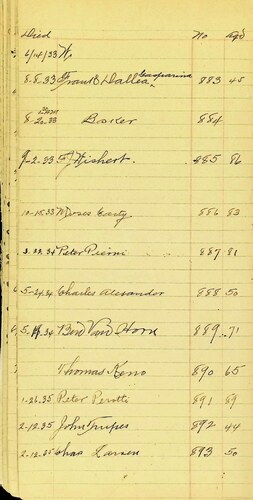 Died No Age
6/14/33 W.
8-8-33 Frank Dallea Gasparine 883 45
Born
8-20-33 Baxter 884
9-2-33 F. Wichert. 885 86
10-15-33 Moses Carty 886 83
3-23-34 Peter Pieroni 887 81
5-24-34 Charles Alexander 888 50
5-14-34 Bert Van Horn 889 71
Thomas Keno 890 65
1-26-35 Peter Perotti 891 89
2-12-35 John 892 44
2-12-35 Chas Larsen 893 50